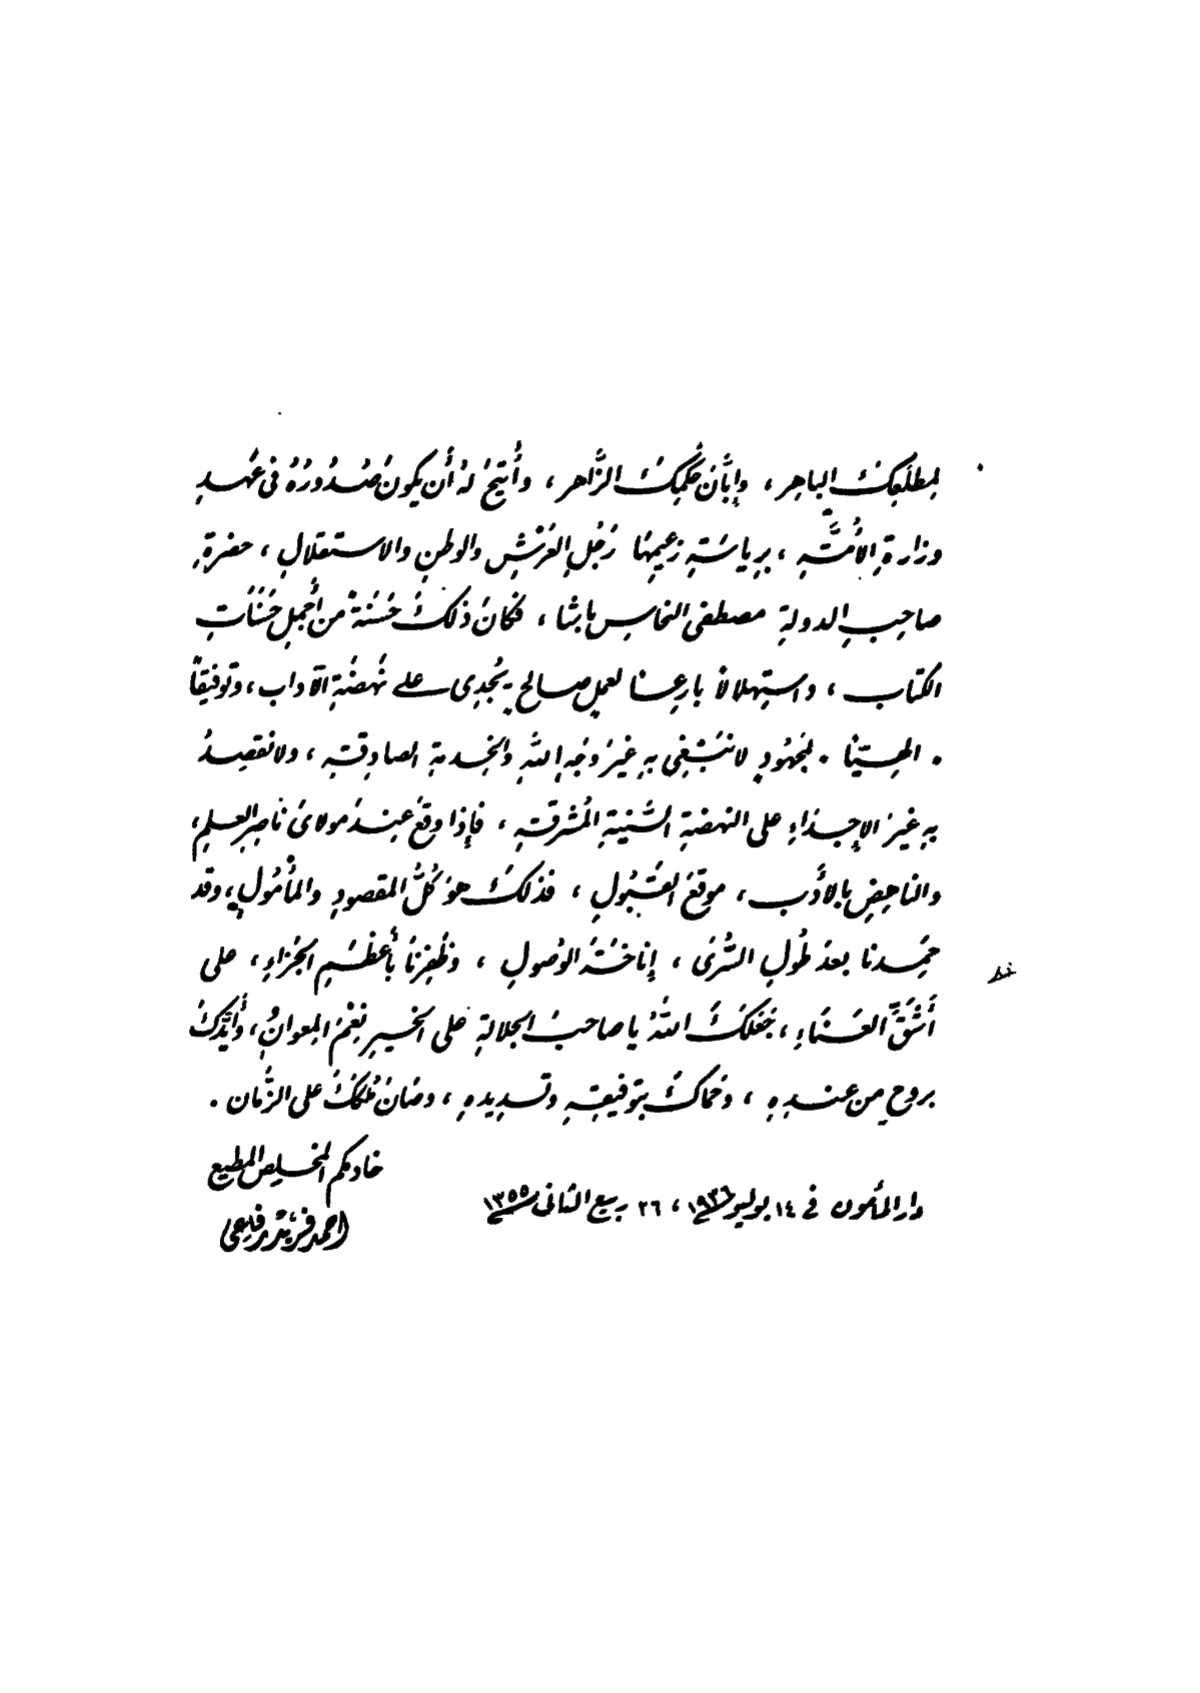 لِمطلَعِكَ الباهِر ، وإبَّان حُكمِكَ الزَّاهر ، وأُتيحَ لهُ أن يكونَ صُدُورُهُ فى عَهدِ
وزارةِ الأُمَّةِ ، بِرياسَةِ زعيمِها رَجُلِ العَرْشِ والوطنِ والاستقلالِ ، حضرةِ
صاحبِ الدولةِ مصطفى النحاس باشا ، فكانَ ذلكَ حَسَنةً من أجملِ حَسَنَاتِ
الكتاب ، واستِهلالاً بارعًا لعملٍ صالحٍ يُجدِى على نَهضَةِ الآداب ، وتوفيقًا
إلهيًّا . لمجهُودٍ لا نَبْتَغِى بهِ غيرَ وَجْهِ اللهِ والخِدمةِ الصادقةِ ، ولا نقصِدُ
بهِ غيرَ الإجداءِ على النهضةِ السَّنِيةِ المُشرقةِ ، فإذا وقعَ عِندَ مولاىَ ناصِرِ العِلمِ ،
والناهِضِ بالأدب ، موقعَ القَبُولِ ، فذلكَ هو كُلُّ المقصودِ والمأمُولِ ، وقد
حَمِدنا بعدَ طُولِ السُّرَى ، إناخَةَ الوُصولِ ، وظَفِرنا بأعظَمِ الجَزاءِ ، على
أشَقِّ العَنَاءِ ، جَعَلكَ اللهُ يا صاحبَ الجلالةِ على الخيرِ نِعْمَ المِعوانُ ، وأيَّدكَ
بروحٍ من عندِهِ ، وحَماكَ بتوفيقِهِ وتسديدهِ ، وصَانَ مُلككَ على الزَّمان .
خادمكم المخلِص المطيع
دار المأمون فى ١٤ يوليو ١٩٣٦ ، ٢٦ ربيع الثانى ١٣٥٥
احمد فريد رفاعى